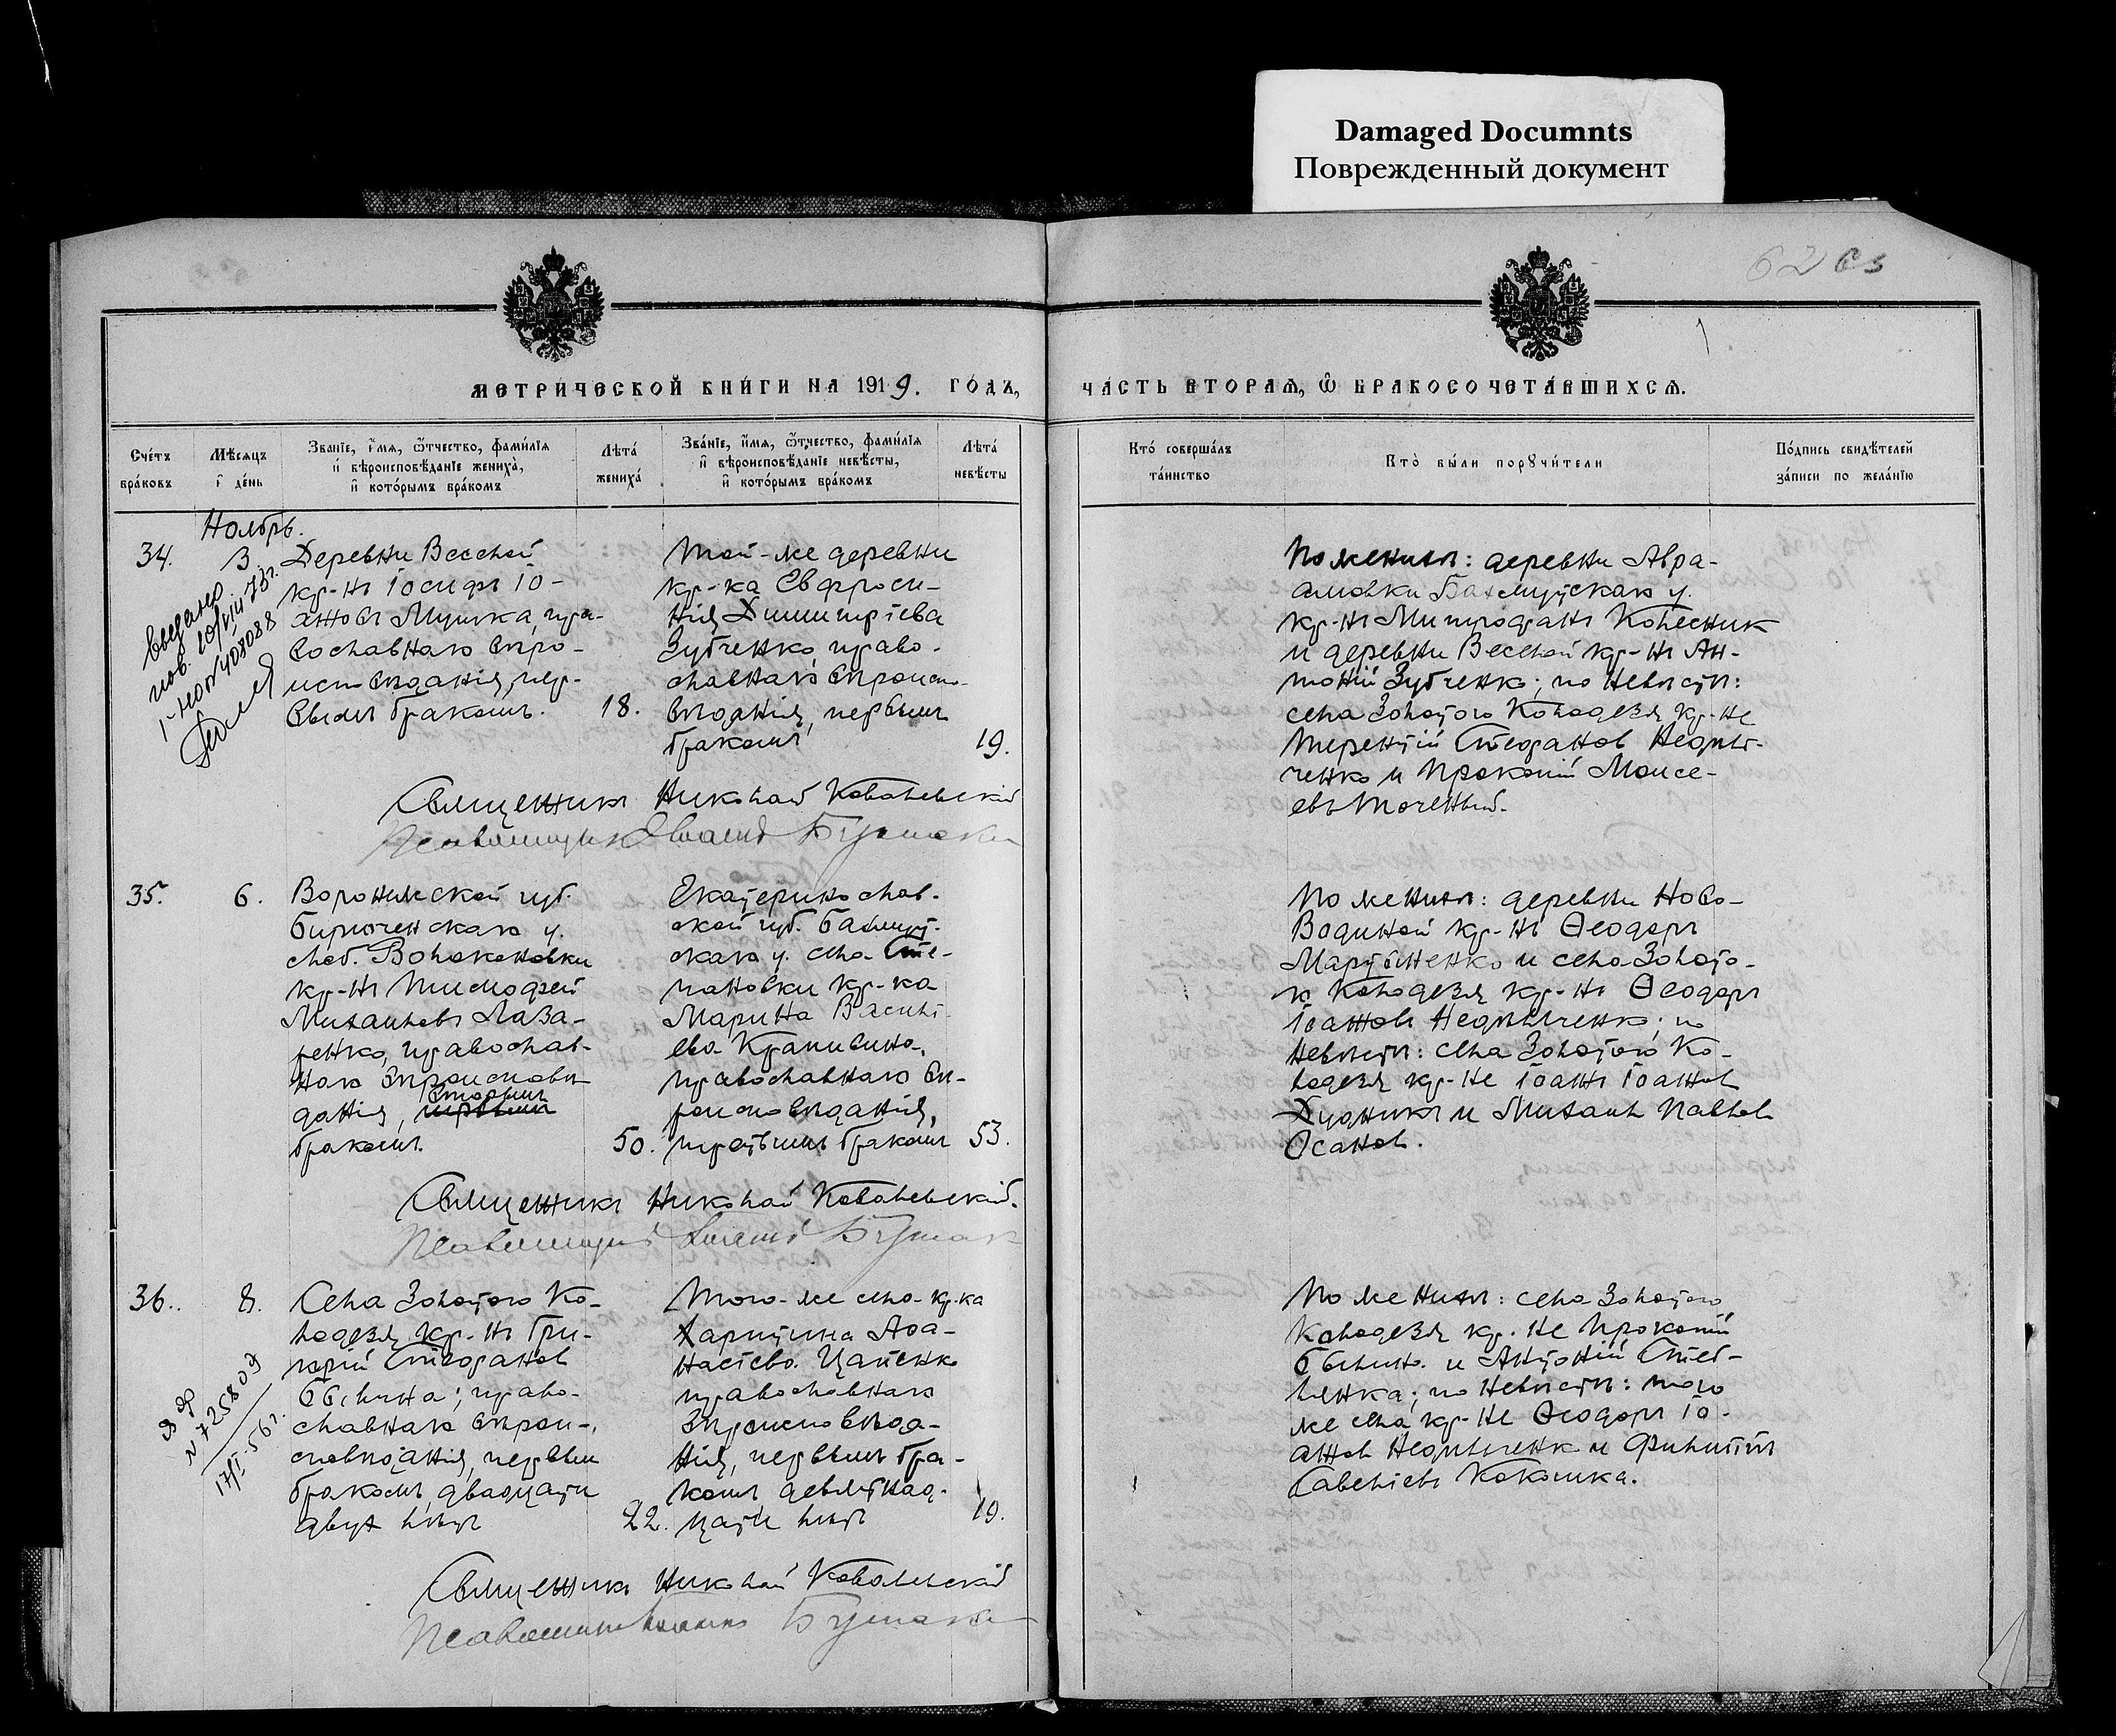 Damaged Documnts
Поврежденный документ
62 об
МЕТРИЧЕСКОЙ КНИГИ НА 1919. ГОДЪ,
ЧАСТЬ ВТОРАЯ, Ѡ БРАКОСОЧЕТАВШИХСЯ.
Счетъ браковъ
Мѣсяцъ и день
Званіе, имя, ѿтчество, фамилія
и вѣроисповѣданіе жениха,
и которымъ бракомъ
Лѣта жениха
Званіе, имя, ѿтчество, фамилія
и вѣроисповѣданіе невѣсты,
и которымъ бракомъ
Лѣта невѣсты
Кто совершалъ таинство
Кто были поручители
Подпись свидѣтелей
записи по желанію
Ноябрь.
34.
3
выдано
пов. 20/VIII 73г.
I-НО № 408088
Деревни Веселой
кр-нъ Іосифъ Іо-
анновъ Мушка, пра-
вославнаго вѣро-
исповѣданія, пер-
вымъ бракомъ.
18.
Той-же деревни
кр-ка Евфроси-
нія Димитріева
Зубченко, право-
славнаго вѣроиспо-
вѣданія, первымъ
бракомъ
19.
Священникъ Николай Ковалевскій
Псаломщикъ
По женихѣ: деревни Авра-
амовки Бахмутскаго у.
кр-нъ Митрофанъ Колесник
и деревни Веселой кр-нъ Ан-
тоній Зубченко; по невѣстѣ:
села Золотого Колодезя кр-не
Терентій Стефанов Недиль-
ченко и Прокопій Моисе-
евъ Точеный.
35.
6.
Воронежской губ.
Бирюченскаго у.
слоб. Волоконовки
кр-нъ Тимофей
Михаиловъ Лаза-
ренко, православ-
наго вѣроисповѣ-
данія, первымъ вторымъ
бракомъ.
50.
Екатеринослав-
ской губ. Бахмут-
скаго у. села Сте-
пановки кр-ка
Марина Василь-
ева Крапивина,
православнаго вѣ-
роисповѣданія,
третьимъ бракомъ
53.
Священникъ Николай Ковалевскій.
Псаломщикъ
По женихѣ: деревни Ново-
Водяной кр-нъ Ѳеодоръ
Мартыненко и села Золото-
го Колодезя кр-нъ Ѳеодоръ
Іоаннов Недильченко; по
невѣстѣ: села Золотого Ко-
лодезя кр-не Іоаннъ Іоаннов
Худникъ и Михаил Павлов
Осанов.
36.
8.
№ 725809
17/I-56г.
Села Золотого Ко-
лодезя кр-нъ Гри-
горій Стефанов
Былина; право-
славнаго вѣрои-
сповѣданія, первым
бракомъ, двадцати
двух лѣтъ
22.
Того-же села кр-ка
Харитина Аѳа-
насіева Цапенко
православнаго
вѣроисповѣда-
нія, первымъ бра-
комъ, девятнад-
цати лѣтъ
19.
Священникъ Николай Ковалевскій
Псаломщикъ
По женихѣ: села Золотого
Колодезя кр-не Прокопій
Былина и Антоній Стеб-
лянка; по невѣстѣ: того
же села кр-не Ѳеодоръ Іо-
аннов Недильченко и Филиппъ
Савельевъ Кокошка.